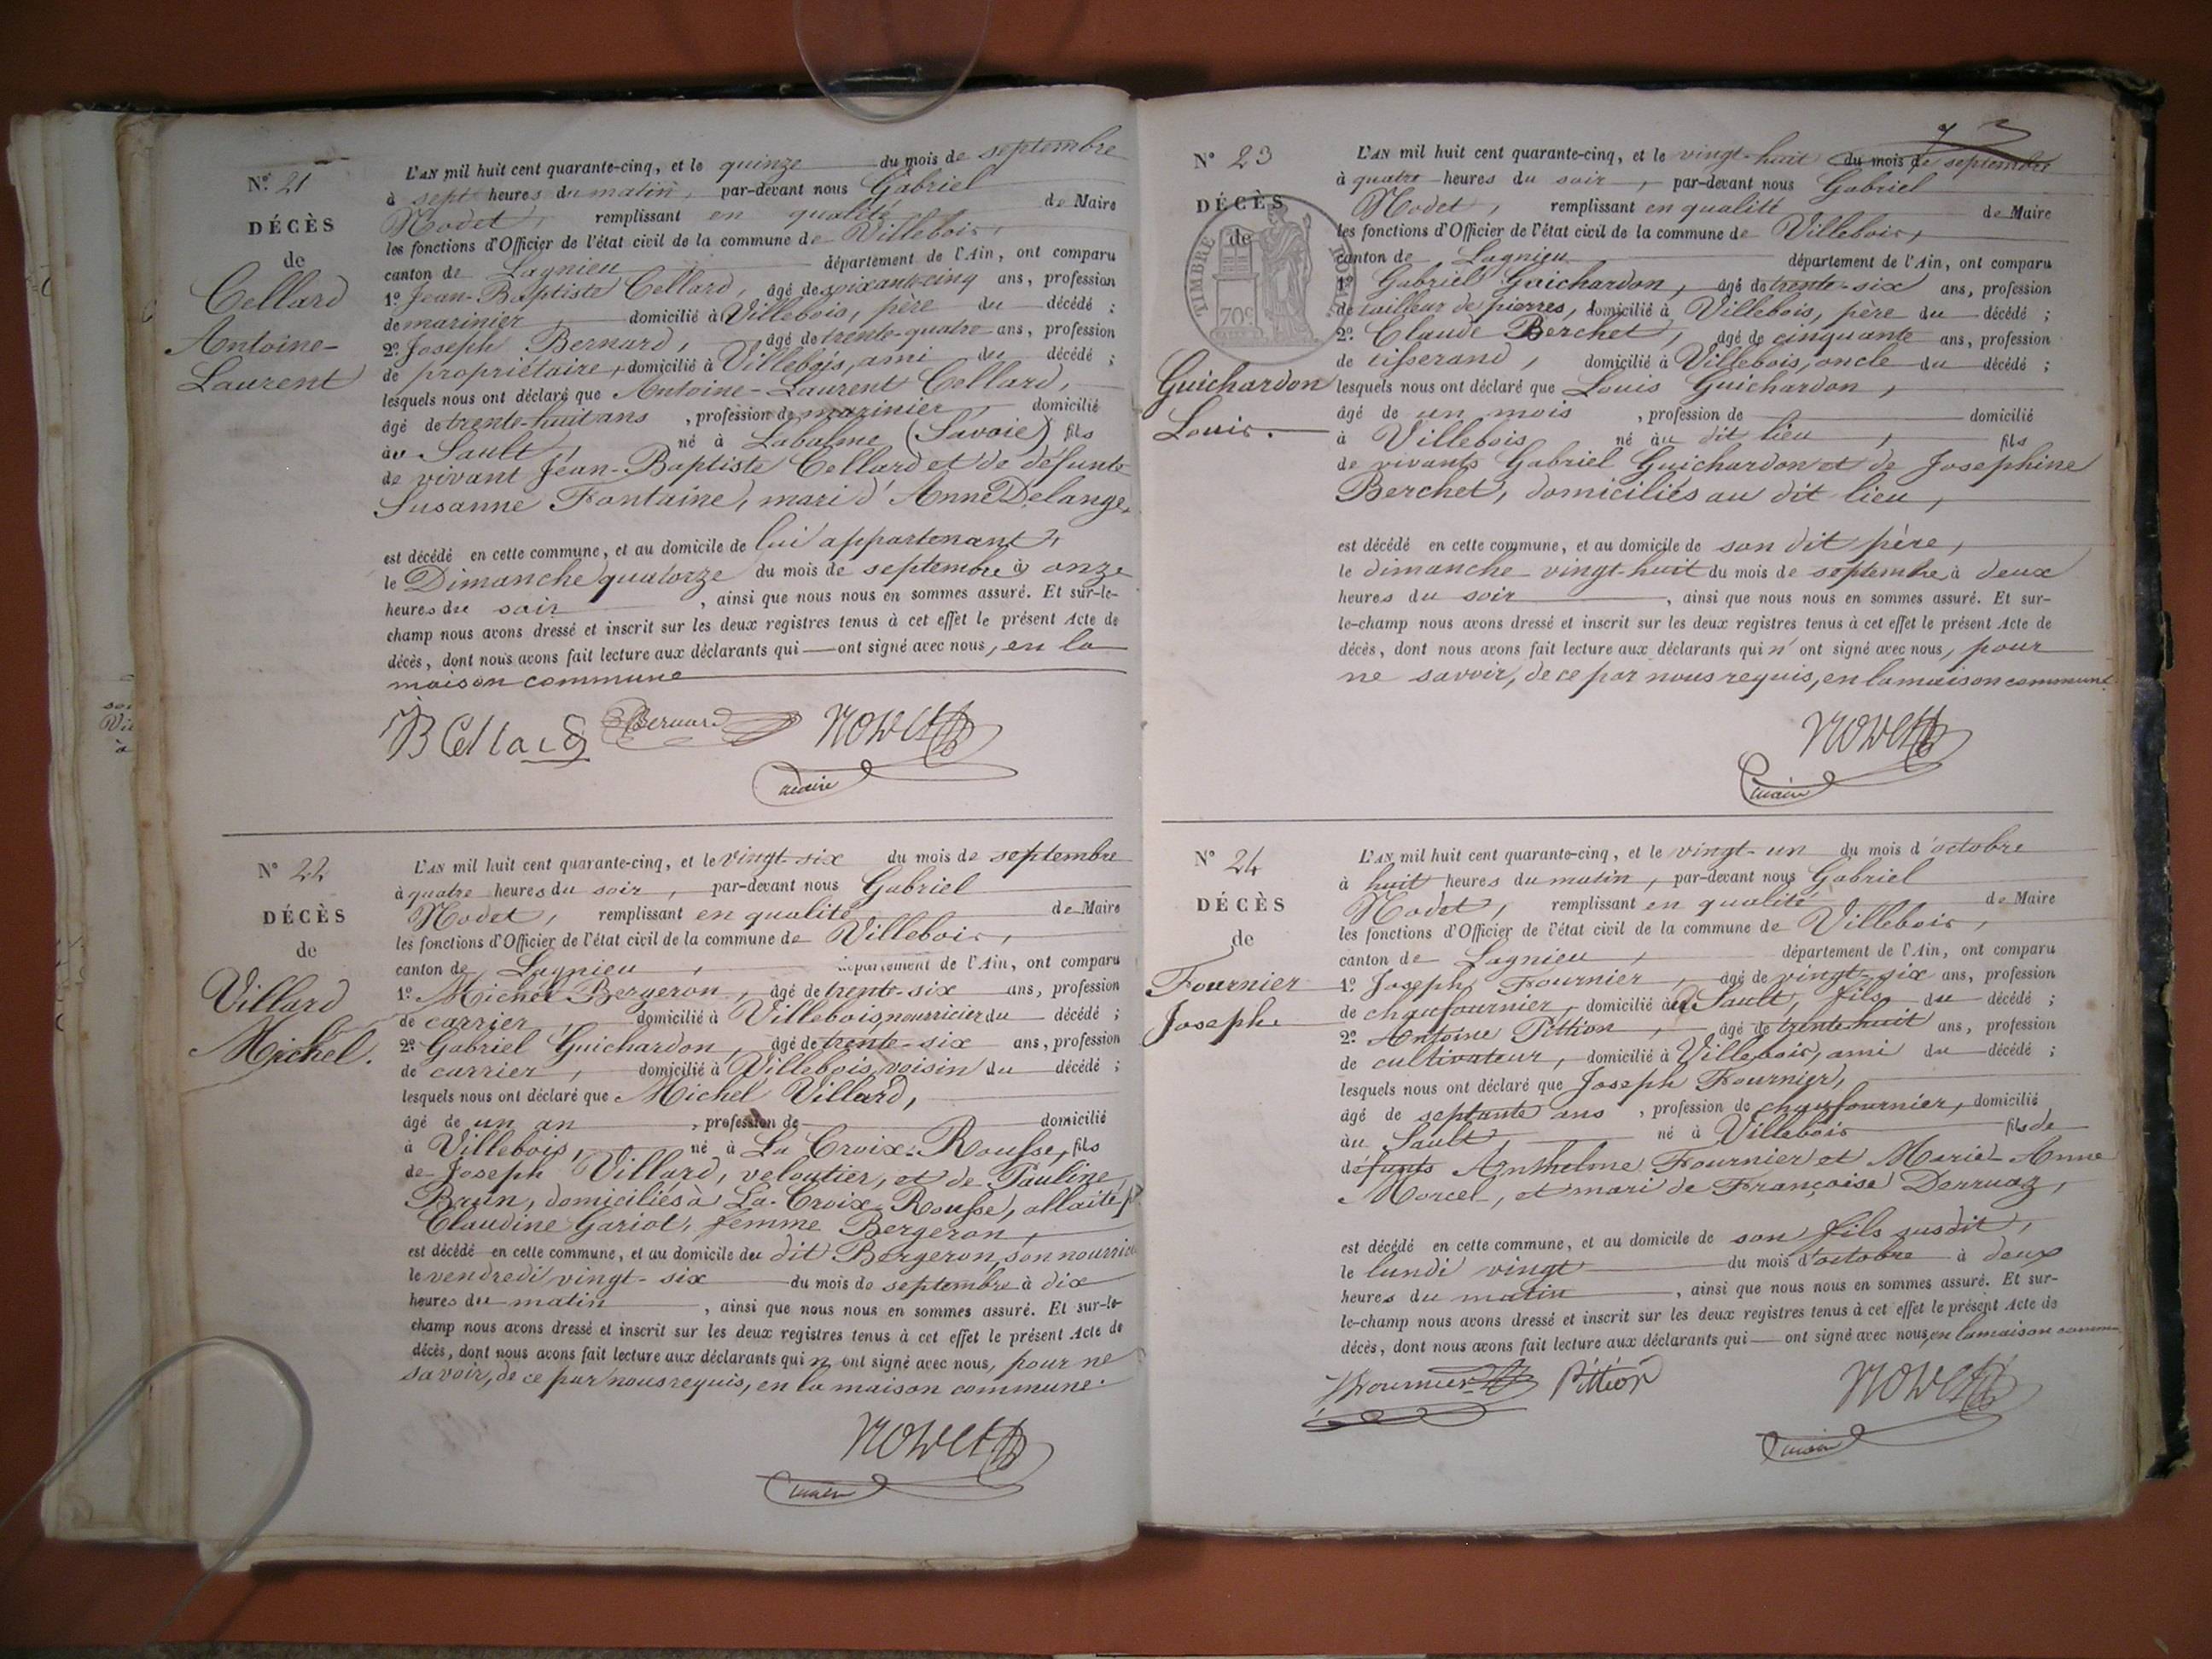 N° 21
DÉCÈS
de
Cellard
Antoine-
Laurent
L'AN mil huit cent quarante-cinq, et le quinze du mois de septembre
à sept heures du matin, par-devant nous Gabriel
Nodet, remplissant en qualité de Maire
les fonctions d'Officier de l'état civil de la commune de Villebois,
canton de Lagnieu département de l'Ain, ont comparu
1º Jean-Baptiste Cellard, âgé de soixante-cinq ans, profession
de marinier, domicilié à Villebois, père du décédé ;
2º Joseph Bernard, âgé de trente-quatre ans, profession
de propriétaire, domicilié à Villebois, ami du décédé ;
lesquels nous ont déclaré que Antoine-Laurent Cellard,
âgé de trente-huit ans, profession de marinier, domicilié
au Sault, né à Labalme (Savoie) fils
de vivant Jean-Baptiste Cellard et de défunte
Susanne Fontaine, mari d'Anne Delange,
est décédé en cette commune, et au domicile de lui appartenant,
le Dimanche quatorze du mois de septembre à onze
heures du soir, ainsi que nous nous en sommes assuré. Et sur-le-
champ nous avons dressé et inscrit sur les deux registres tenus à cet effet le présent Acte de
décès, dont nous avons fait lecture aux déclarants qui — ont signé avec nous, en la
maison commune
JB Cellard Bernard Nodet
maire
N° 22
DÉCÈS
de
Villard
Michel.
L'AN mil huit cent quarante-cinq, et le vingt-six du mois de septembre
à quatre heures du soir, par-devant nous Gabriel
Nodet, remplissant en qualité de Maire
les fonctions d'Officier de l'état civil de la commune de Villebois,
canton de Lagnieu, département de l'Ain, ont comparu
1º Michel Bergeron, âgé de trente-six ans, profession
de carrier, domicilié à Villebois, nourricier du décédé ;
2º Gabriel Guichardon, âgé de trente-six ans, profession
de carrier, domicilié à Villebois, voisin du décédé ;
lesquels nous ont déclaré que Michel Villard,
âgé de un an, profession de domicilié
à Villebois, né à La Croix-Rousse, fils
de Joseph Villard, veloutier, et de Pauline
Brun, domiciliés à La-Croix-Rousse, allaité p.
Claudine Gariot, femme Bergeron,
est décédé en cette commune, et au domicile du dit Bergeron, son nourricier
le vendredi vingt-six du mois de septembre à dix
heures du matin, ainsi que nous nous en sommes assuré. Et sur-le-
champ nous avons dressé et inscrit sur les deux registres tenus à cet effet le présent Acte de
décès, dont nous avons fait lecture aux déclarants qui n'ont signé avec nous, pour ne
savoir, de ce par nous requis, en la maison commune.
Nodet
maire
N° 23
DÉCÈS
de
TIMBRE ROYAL
70c
Guichardon
Louis.
L'AN mil huit cent quarante-cinq, et le vingt-huit du mois de septembre
à quatre heures du soir, par-devant nous Gabriel
Nodet, remplissant en qualité de Maire
les fonctions d'Officier de l'état civil de la commune de Villebois,
canton de Lagnieu département de l'Ain, ont comparu
1º Gabriel Guichardon, âgé de trente-six ans, profession
de tailleur de pierres, domicilié à Villebois, père du décédé ;
2º Claude Berchet, âgé de cinquante ans, profession
de tisserand, domicilié à Villebois, oncle du décédé ;
lesquels nous ont déclaré que Louis Guichardon,
âgé de un mois, profession de domicilié
à Villebois né au dit lieu, fils
de vivants Gabriel Guichardon et de Josephine
Berchet, domiciliés au dit lieu,
est décédé en cette commune, et au domicile de son dit père,
le dimanche vingt-huit du mois de septembre à deux
heures du soir, ainsi que nous nous en sommes assuré. Et sur-
le-champ nous avons dressé et inscrit sur les deux registres tenus à cet effet le présent Acte de
décès, dont nous avons fait lecture aux déclarants qui n'ont signé avec nous, pour
ne savoir, de ce par nous requis, en la maison commune.
Nodet
maire
N° 24
DÉCÈS
de
Fournier
Joseph
L'AN mil huit cent quarante-cinq, et le vingt-un du mois d'octobre
à huit heures du matin, par-devant nous Gabriel
Nodet, remplissant en qualité de Maire
les fonctions d'Officier de l'état civil de la commune de Villebois,
canton de Lagnieu, département de l'Ain, ont comparu
1º Joseph Fournier, âgé de vingt-six ans, profession
de chaufournier, domicilié au Sault, fils du décédé ;
2º Antoine Pittion, âgé de trente huit ans, profession
de cultivateur, domicilié à Villebois, ami du décédé ;
lesquels nous ont déclaré que Joseph Fournier,
âgé de septante ans, profession de chaufournier, domicilié
au Sault, né à Villebois fils de
défunts Anthelme Fournier et Marie-Anne
Morcel, et mari de Françoise Derruaz,
est décédé en cette commune, et au domicile de son fils susdit,
le lundi vingt du mois d'octobre à deux
heures du matin, ainsi que nous nous en sommes assuré. Et sur-
le-champ nous avons dressé et inscrit sur les deux registres tenus à cet effet le présent Acte de
décès, dont nous avons fait lecture aux déclarants qui — ont signé avec nous, en la maison commune
Fournier Pittion Nodet
maire